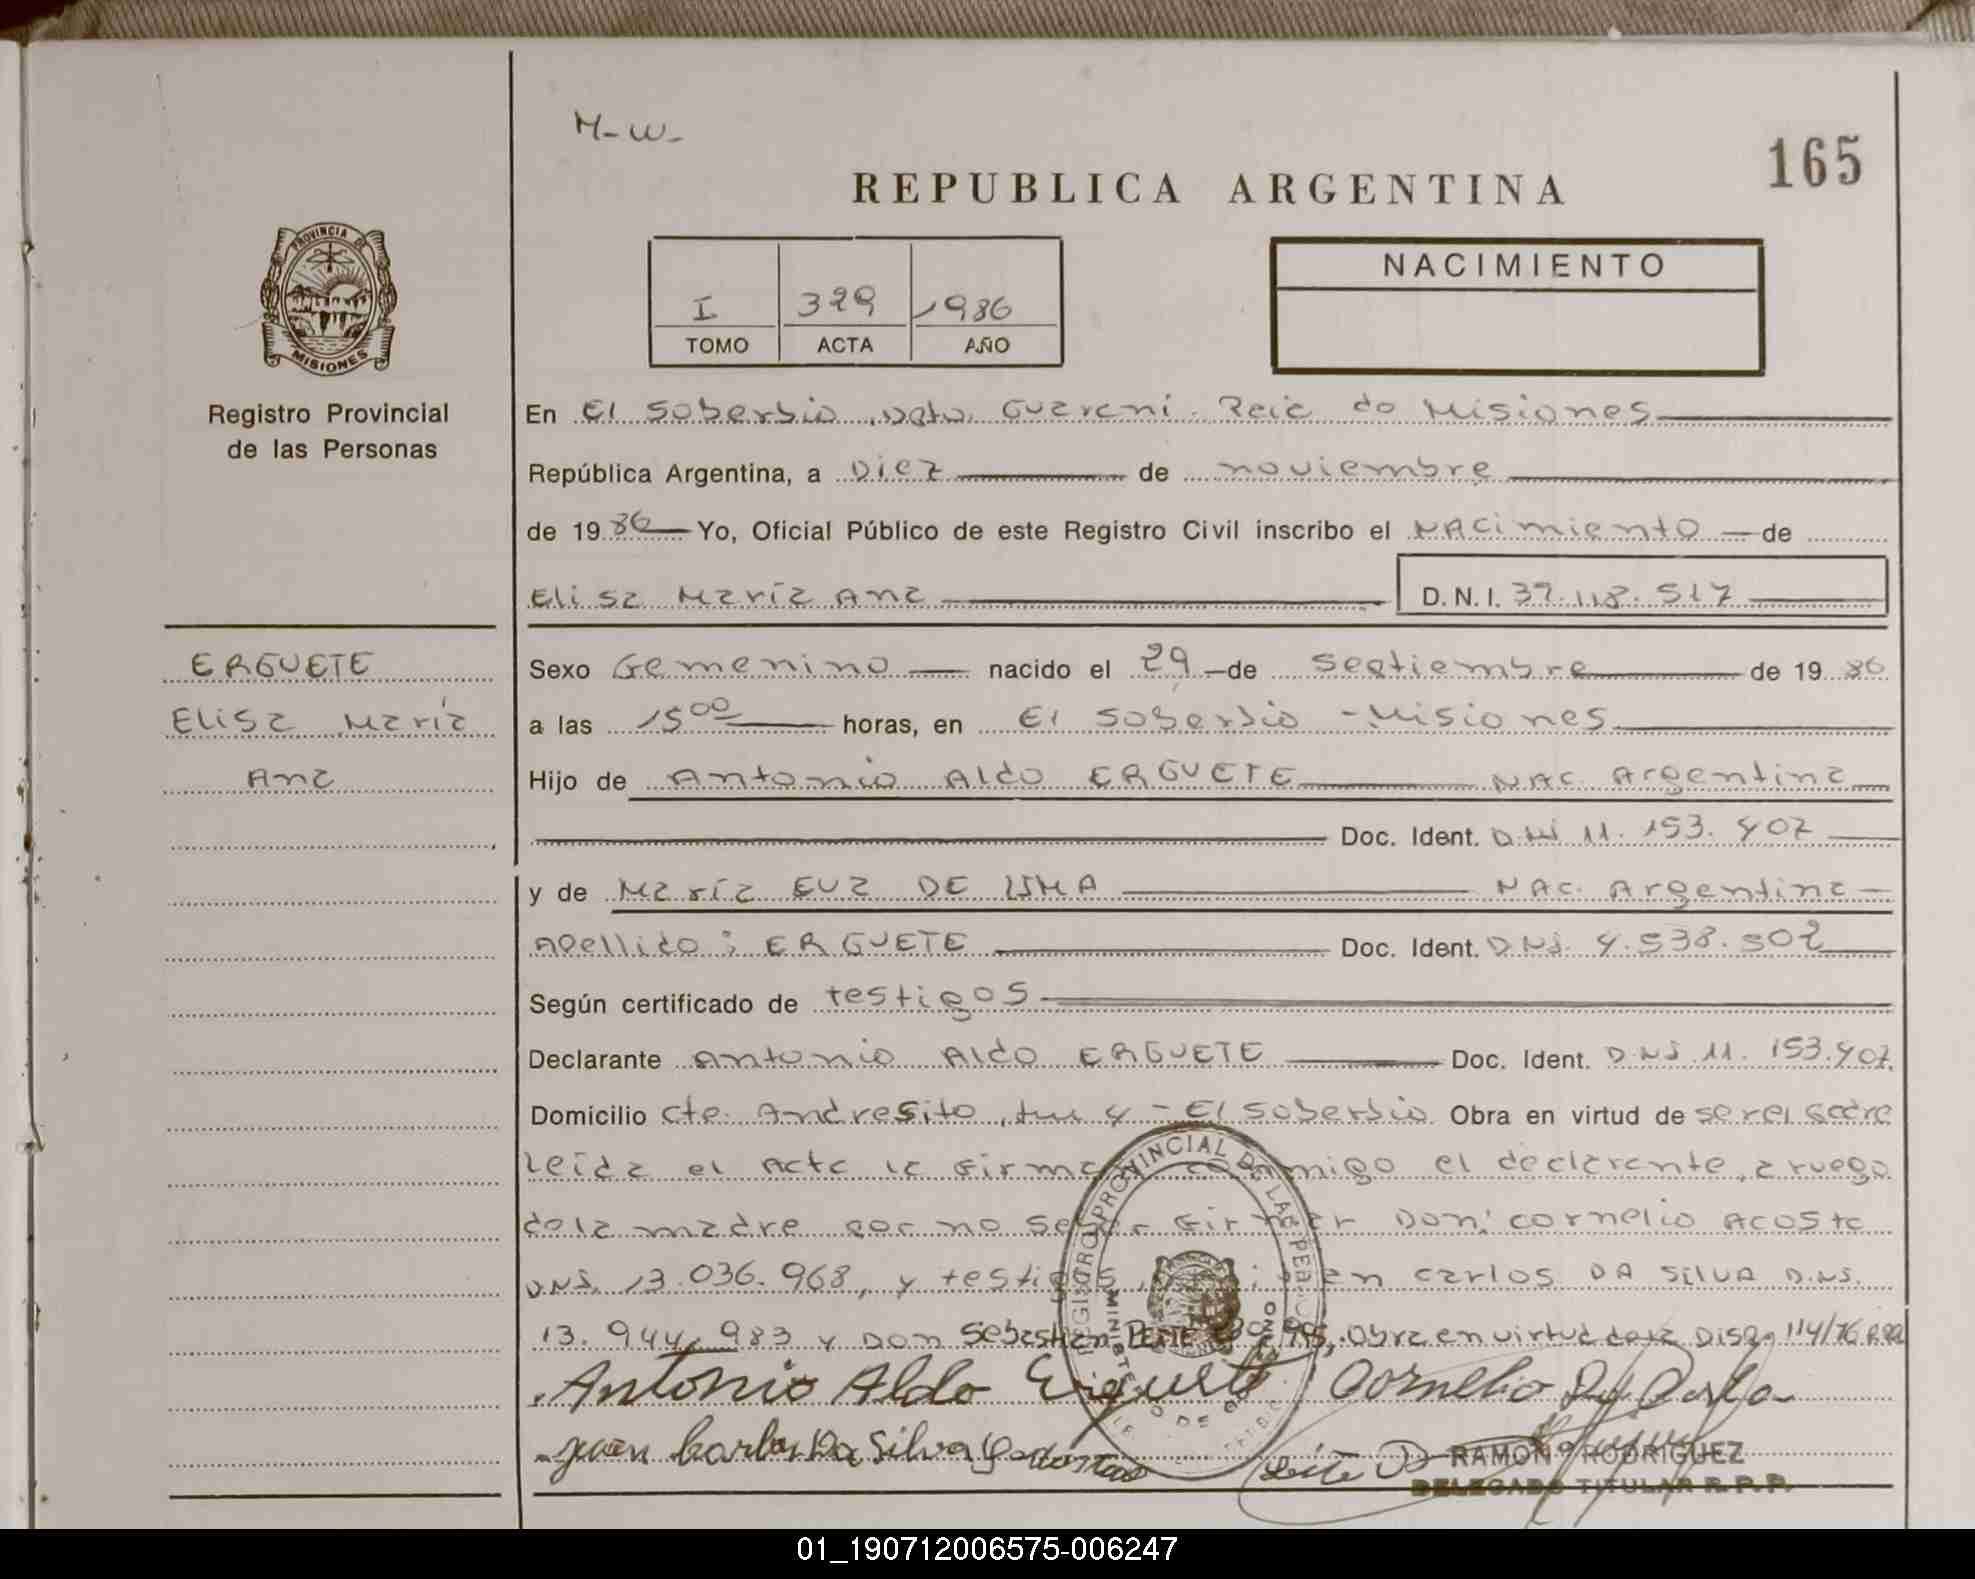 M-W-
165
REPUBLICA ARGENTINA
PROVINCIA DE
MISIONES
Registro Provincial
de las Personas
I 329 1986
TOMO ACTA AÑO
NACIMIENTO
En El Soberbio, Dpto. Guaraní. Pcia de Misiones
República Argentina, a Diez de noviembre
de 1986 Yo, Oficial Público de este Registro Civil inscribo el NAcimiento de
Elisa María Ana D.N.I. 37.118.517
ERGUETE
Elisa María
Ana
Sexo Femenino nacido el 29 de Septiembre de 1986
a las 15 00 horas, en El Soberbio - Misiones
Hijo de Antonio Aldo ERGUETE NAC. Argentina
Doc. Ident. D.NI 11.153.407
y de María EVA DE LIMA NAC. Argentina
Apellido: ERGUETE Doc. Ident. DNI. 4.538.502
Según certificado de testigos
Declarante Antonio Aldo ERGUETE Doc. Ident. D.NI 11.153.407
Domicilio Cte. Andresito, 4 - El Soberbio. Obra en virtud de ser el padre
Leída el Acta la firma conmigo el declarante, a ruego
de la madre por no saber firmar Don: Cornelio Acosta
DNI. 13.036.968, y testigos Carlos DA SILVA D.NI.
13.944.983 y Don Sebastian Obra en virtud de la Disp. 114/76
REGISTRO PROVINCIAL DE LAS PERSONAS
Antonio Aldo Erguete Cornelio
Juan Carlos Da Silva
RAMON RODRIGUEZ
DELEGADO TITULAR R.P.P.
01_190712006575-006247